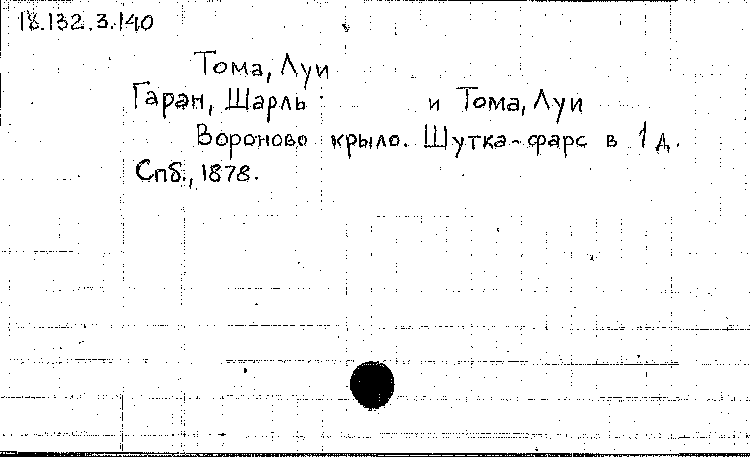 18.132.3.140
Тома, Луи
Гаран, Шарль и Тома, Луи
Вороново крыло. Шутка-фарс в 1 д.
Спб., 1878.